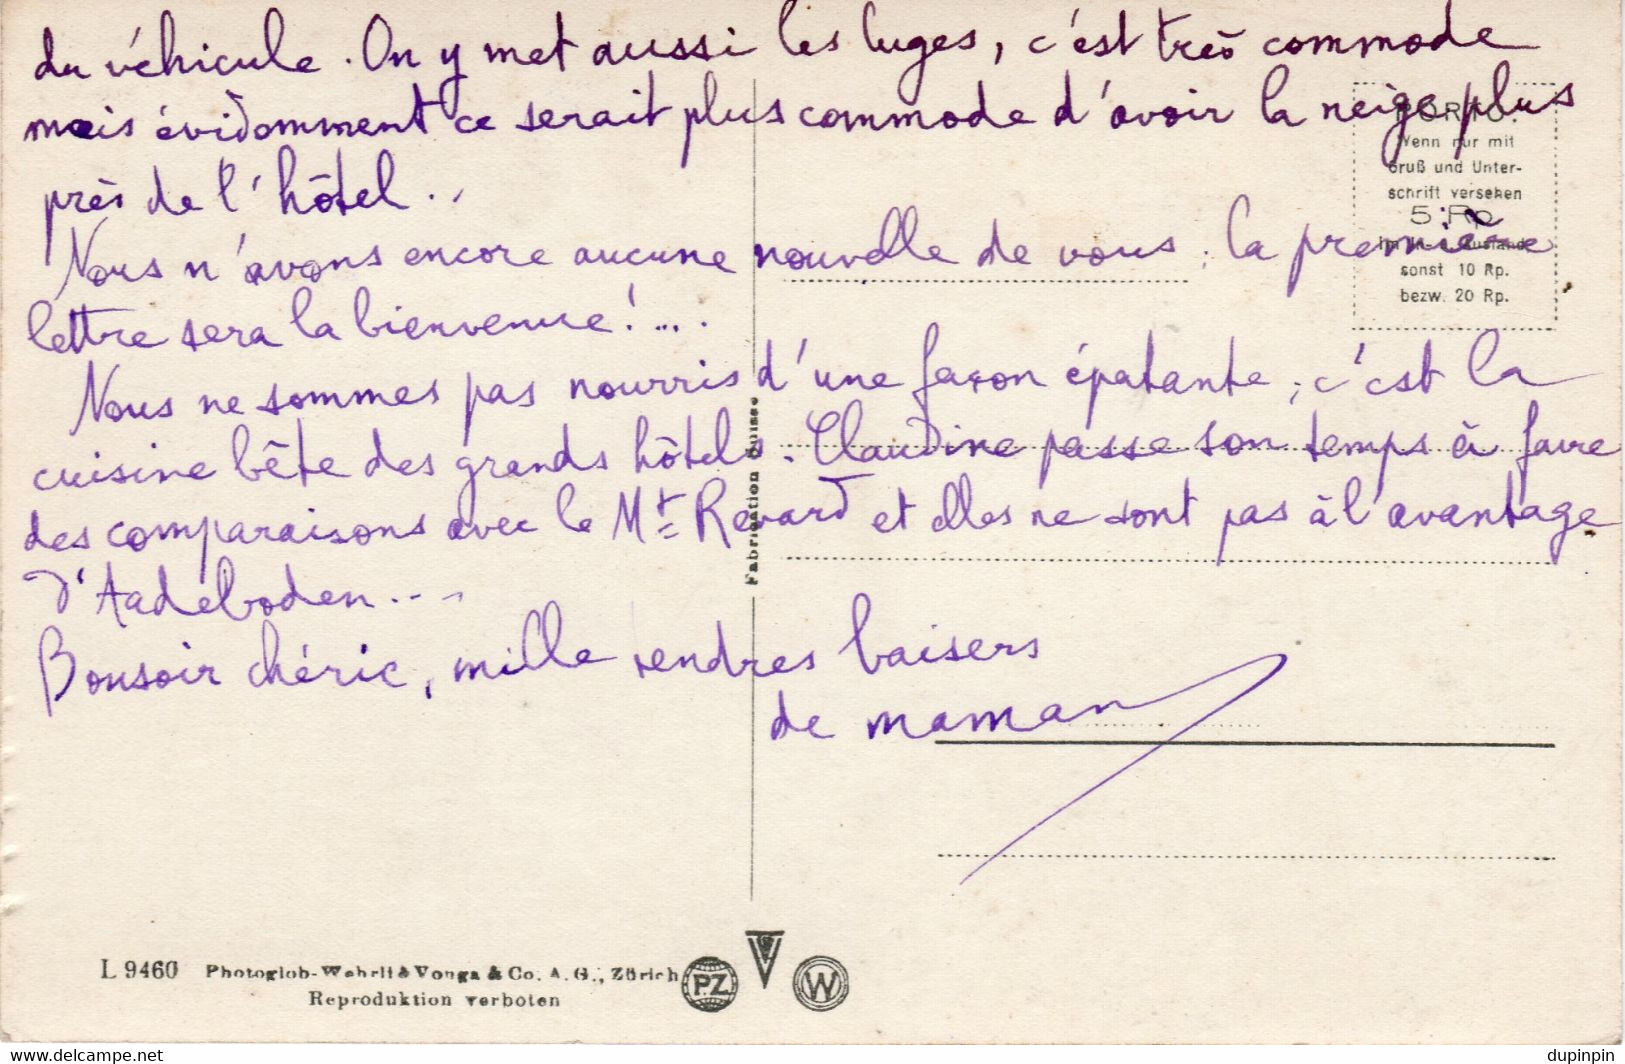 du véhicule. On y met aussi les luges, c'est très commode
mais évidemment ce serait plus commode d'avoir la neige plus
près de l'hôtel..
Nous n'avons encore aucune nouvelle de vous; la première
lettre sera la bienvenue!....
Nous ne sommes pas nourris d'une façon épatante, c'est la
cuisine bête des grands hôtels. Claudine passe son temps à faire
des comparaisons avec le Mt Revard et elles ne sont pas à l'avantage
d'Aadeboden...
Bonsoir chérie, mille tendres baisers
de maman
PORTO:
Wenn nur mit
Gruß und Unter-
schrift versehen
5 Rp
im In- u. Ausland
sonst 10 Rp.
bezw. 20 Rp.
Fabrication Suisse
L 9460 Photoglob-Wehrli & Vouga & Co. A. G., Zürich
Reproduktion verboten
PZ
W
https://www.delcampe.net
dupinpin